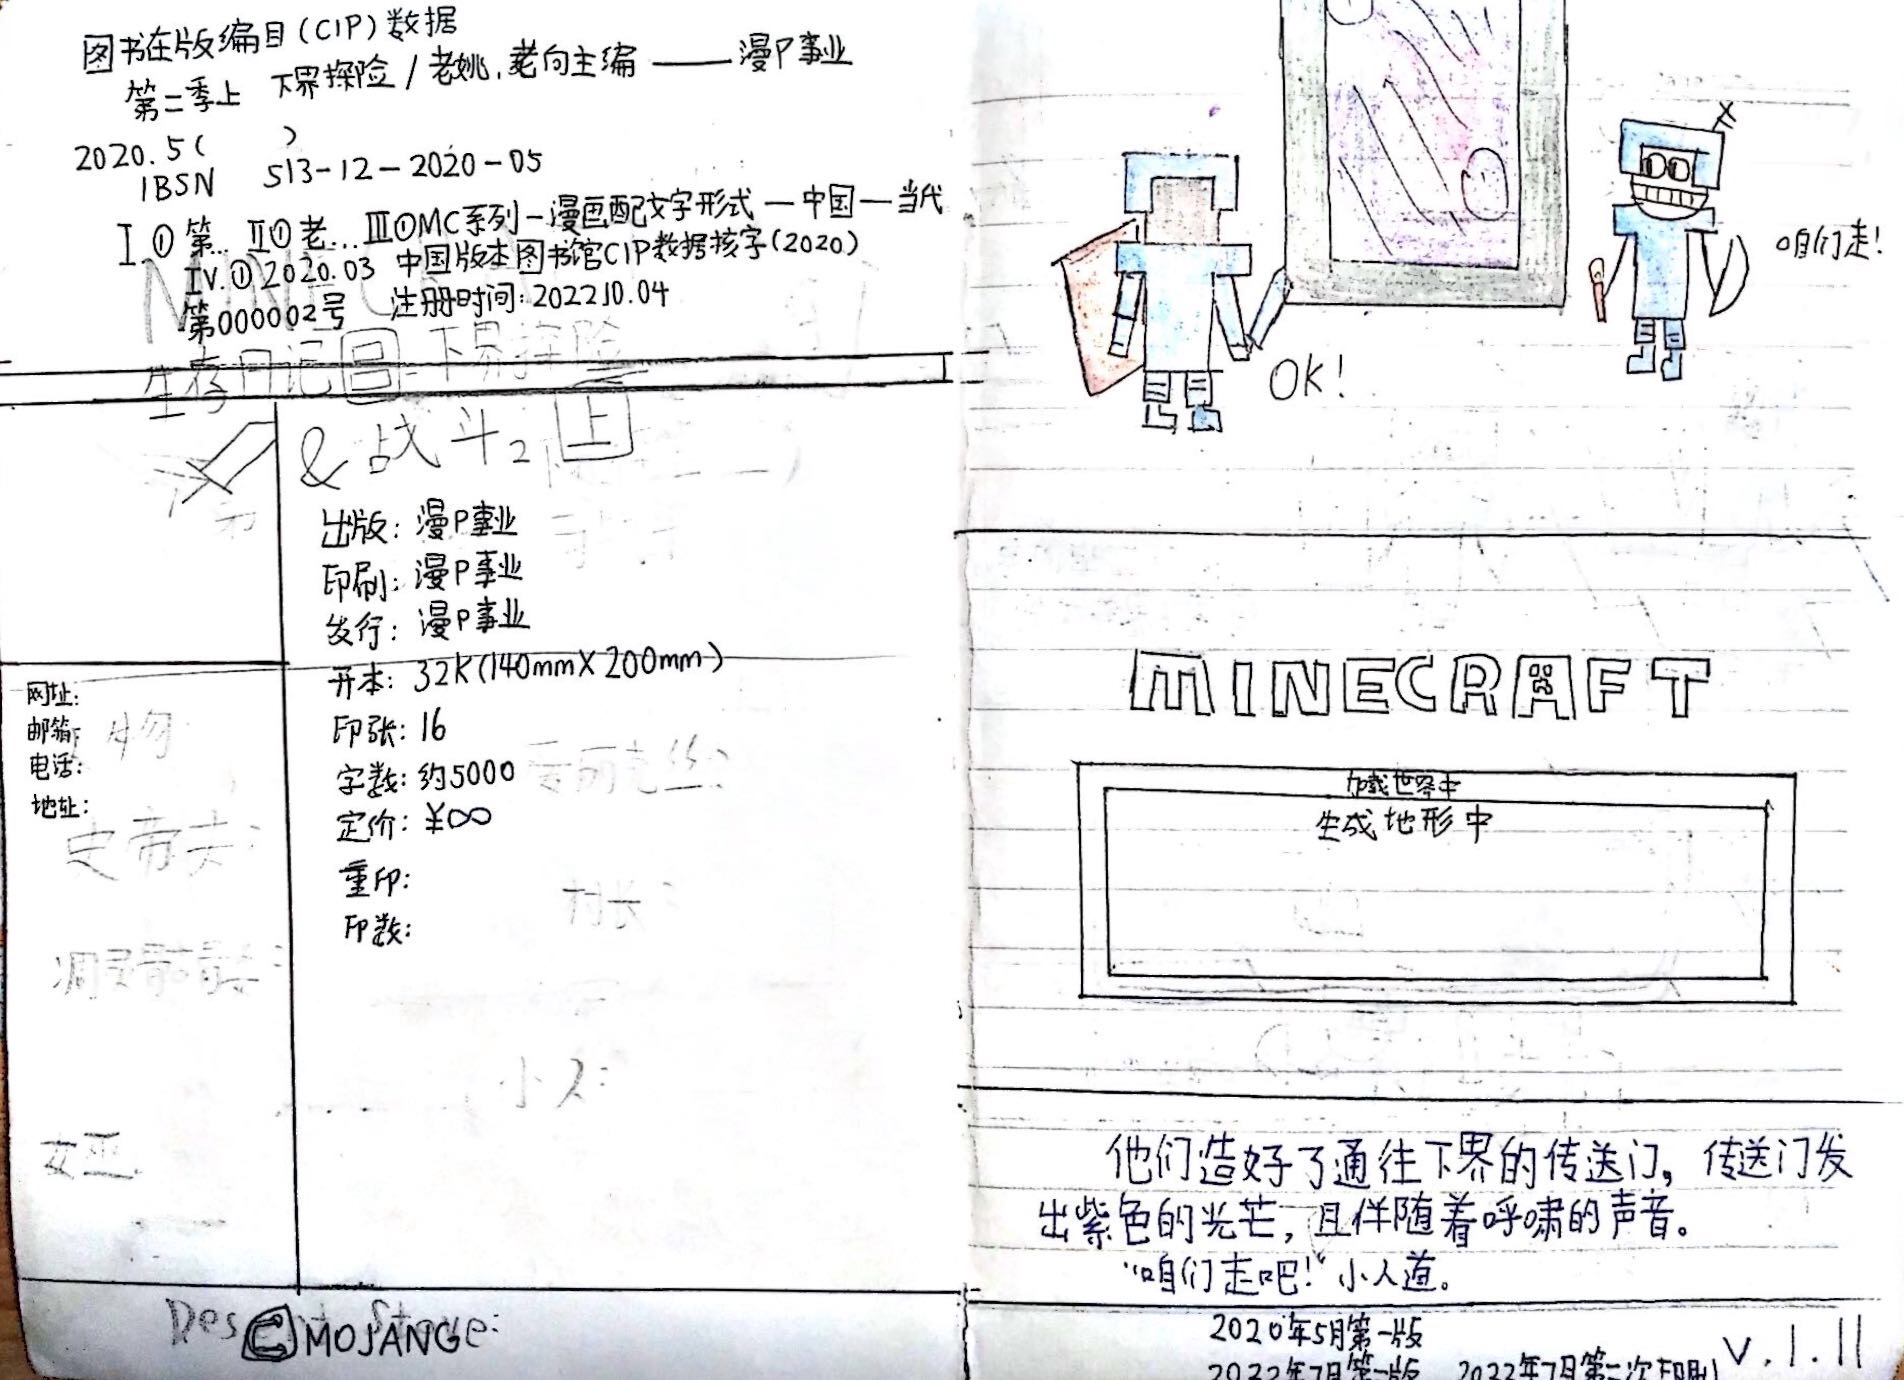 图书在版编目(CIP)数据
第二季上 下界探险/老姚,老向主编——漫P事业
2020.5( )
IBSN 513-12-2020-05
I.①第… II①老… III①MC系列-漫画配文字形式-中国-当代
IV.①2020.03 中国版本图书馆CIP数据核字(2020)
第000002号 注册时间:2022.10.04
生存日记 下界探险
&战斗2 上
出版:漫P事业
印刷:漫P事业
发行:漫P事业
开本:32K(140mmX200mm)
印张:16
字数:约5000
定价:¥∞
重印:
印数:
网址:
邮箱:
电话:
地址:
史帝夫:
凋灵骷髅:
村长:
小人:
女巫
MOJANG
咱们走!
OK!
MINECRAFT
加载世界中
生成地形中
他们造好了通往下界的传送门,传送门发
出紫色的光芒,且伴随着呼啸的声音。
“咱们走吧!”小人道。
2020年5月第一版
2022年7月第一版 2022年7月第二次印刷
v.1.11